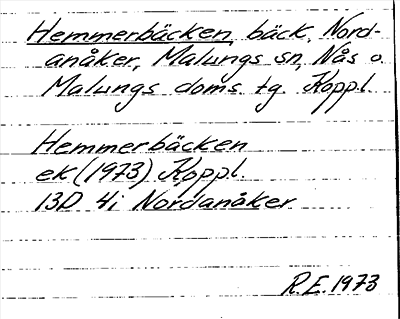 Hemmerbäcken, bäck, Nord-
anåker, Malungs sn, Nås o
Malungs doms. tg. Koppl.
Hemmerbäcken
ek (1973) Koppl.
13D 4i Nordanåker
R.E. 1973